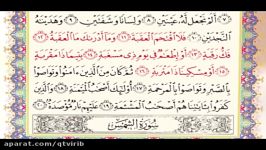 ﴿٧﴾ أَلَمْ نَجْعَل لَّهُ عَيْنَيْنِ ﴿٨﴾ وَلِسَانًا وَشَفَتَيْنِ ﴿٩﴾ وَهَدَيْنَٰهُ
النَّجْدَيْنِ ﴿١٠﴾ فَلَا اقْتَحَمَ الْعَقَبَةَ ﴿١١﴾ وَمَا أَدْرَىٰكَ مَا الْعَقَبَةُ ﴿١٢﴾
فَكُّ رَقَبَةٍ ﴿١٣﴾ أَوْ إِطْعَٰمٌ فِي يَوْمٍ ذِي مَسْغَبَةٍ ﴿١٤﴾ يَتِيمًا ذَا مَقْرَبَةٍ
﴿١٥﴾ أَوْ مِسْكِينًا ذَا مَتْرَبَةٍ ﴿١٦﴾ ثُمَّ كَانَ مِنَ الَّذِينَ ءَامَنُوا وَتَوَاصَوْا
بِالصَّبْرِ وَتَوَاصَوْا بِالْمَرْحَمَةِ ﴿١٧﴾ أُولَٰئِكَ أَصْحَٰبُ الْمَيْمَنَةِ ﴿١٨﴾ وَالَّذِينَ
كَفَرُوا بِـَٔايَٰتِنَا هُمْ أَصْحَٰبُ الْمَشْـَٔمَةِ ﴿١٩﴾ عَلَيْهِمْ نَارٌ مُّؤْصَدَةٌ ﴿٢٠﴾
سُورَةُ الشَّمْسِ
aparat.com/qtvirib